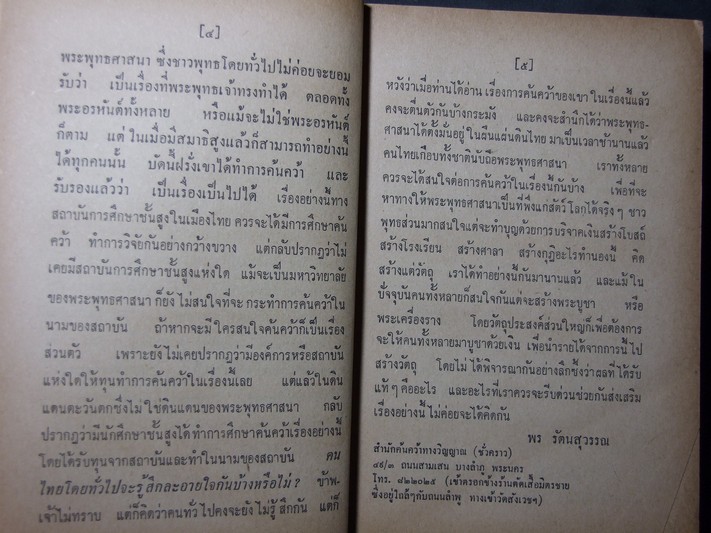 [๔]
พระพุทธศาสนา ซึ่งชาวพุทธโดยทั่วไปไม่ค่อยจะยอม
รับว่า เป็นเรื่องที่พระพุทธเจ้าทรงทำได้ ตลอดทั้ง
พระอรหันต์ทั้งหลาย หรือแม้จะไม่ใช่พระอรหันต์
ก็ตาม แต่ ในเมื่อมีสมาธิสูงแล้วก็สามารถทำอย่างนี้
ได้ทุกคนนั้น บัดนี้ฝรั่งเขาได้ทำการค้นคว้า และ
รับรองแล้วว่า เป็นเรื่องเป็นไปได้ เรื่องอย่างนี้ทาง
สถาบันการศึกษาชั้นสูงในเมืองไทย ควรจะได้มีการศึกษาค้น
คว้า ทำการวิจัยกันอย่างกว้างขวาง แต่กลับปรากฏว่าไม่
เคยมีสถาบันการศึกษาชั้นสูงแห่งใด แม้จะเป็นมหาวิทยาลัย
ของพระพุทธศาสนา ก็ยังไม่สนใจที่จะกระทำการค้นคว้าใน
นามของสถาบัน ถ้าหากจะมีใครสนใจค้นคว้าก็เป็นเรื่อง
ส่วนตัว เพราะยังไม่เคยปรากฏว่ามีองค์การหรือสถาบัน
แห่งใดให้ทุนทำการค้นคว้าในเรื่องนี้เลย แต่แล้วในดิน
แดนตะวันตกซึ่งไม่ใช่ดินแดนของพระพุทธศาสนา กลับ
ปรากฏว่ามีนักศึกษาชั้นสูงได้ทำการศึกษาค้นคว้าเรื่องอย่างนี้
โดยได้รับทุนจากสถาบันและทำในนามของสถาบัน คน
ไทยโดยทั่วไปจะรู้สึกละอายใจกันบ้างหรือไม่? ข้าพ-
เจ้าไม่ทราบ แต่ก็คิดว่าคนทั่วไปคงจะยังไม่รู้สึกกัน แต่ก็
[๕]
หวังว่าเมื่อท่านได้อ่าน เรื่องการค้นคว้าของเขา ในเรื่องนี้แล้ว
คงจะตื่นตัวกันบ้างกระมัง และคงจะสำนึกได้ว่าพระพุทธ-
ศาสนาได้ตั้งมั่นอยู่ในผืนแผ่นดินไทย มาเป็นเวลาช้านานแล้ว
คนไทยเกือบทั้งชาตินับถือพระพุทธศาสนา เราทั้งหลาย
ควรจะได้สนใจต่อการค้นคว้าในเรื่องนี้กันบ้าง เพื่อที่จะ
หาทางให้พระพุทธศาสนาเป็นที่พึ่งแก่สัตว์โลกได้จริงๆ ชาว
พุทธส่วนมากสนใจแต่จะทำบุญด้วยการบริจาคเงินสร้างโบสถ์
สร้างโรงเรียน สร้างศาลา สร้างกุฏิอะไรทำนองนี้ คิด
สร้างแต่วัตถุ เราได้ทำอย่างนี้กันมานานแล้ว และแม้ใน
ปัจจุบันคนทั้งหลายก็สนใจกันแต่จะสร้างพระบูชา หรือ
พระเครื่องราง โดยวัตถุประสงค์ส่วนใหญ่ก็เพื่อต้องการ
จะให้คนทั้งหลายมาบูชาด้วยเงิน เพื่อนำรายได้จากการนี้ไป
สร้างวัตถุ โดยไม่ได้พิจารณากันอย่างลึกซึ้งว่าผลที่ได้รับ
แท้ๆ คืออะไร และอะไรที่เราควรจะรีบด่วนช่วยกันส่งเสริม
เรื่องอย่างนี้ไม่ค่อยจะได้คิดกัน
พร รัตนสุวรรณ
สำนักค้นคว้าทางวิญญาณ (ชั่วคราว)
๔๙/๓ ถนนสามเสน บางลำภู พระนคร
โทร. ๘๒๒๐๒๕ (เข้าตรอกข้างร้านตัดเสื้อมิตรชาย
ซึ่งอยู่ใกล้ๆกับถนนลำพู ทางเข้าวัดสังเวชฯ)